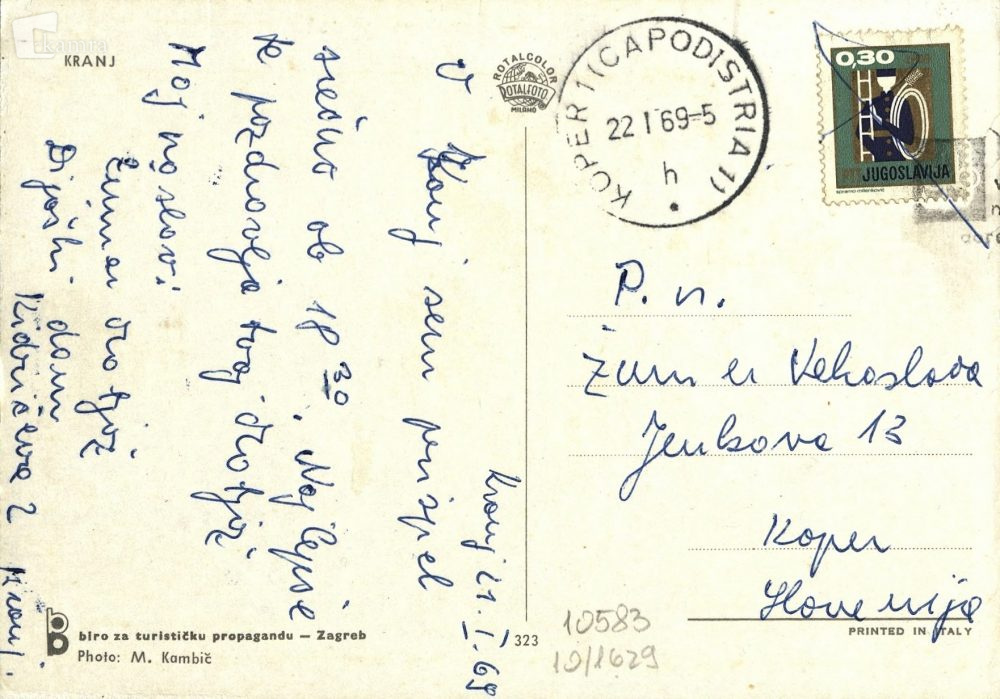 KRANJ
Kranj 21. I. 69
V Kranj sem prispel
srečno ob 18 30. Najlepše
te pozdravlja tvoj Dratjož
Moj naslov:
Žumer Dratjož
Dijaški dom
Kidričeva 2 Kranj.
biro za turističku propagandu – Zagreb
Photo: M. Kambič
323
ROTALCOLOR
ROTALFOTO
MILANO
KOPER 1 (CAPODISTRIA 1)
22 I 69-5
h
0,30
JUGOSLAVIJA
P. n.
Žumer Vekoslava
Jenkova 13
Koper
Slovenija
PRINTED IN ITALY
10583
10/1629